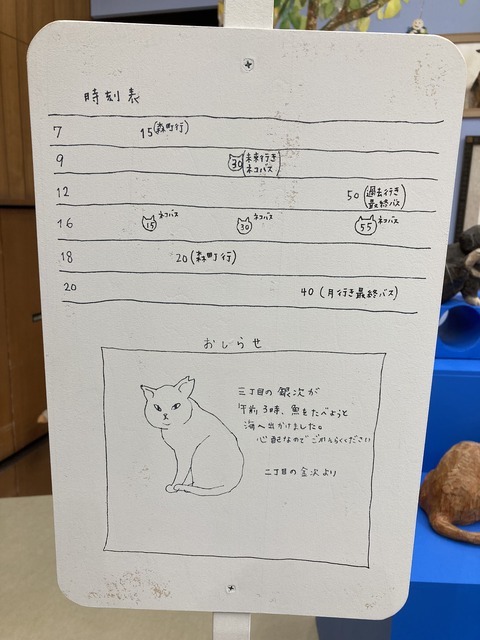 時刻表
7 15(森町行)
9 30(未来行き
ネコバス)
12 50(過去行き
最終バス)
16 15 ネコバス 30 ネコバス 55 ネコバス
18 20(森町行)
20 40(月行き最終バス)
おしらせ
三丁目の銀次が
午前3時、魚をたべようと
海へ出かけました。
心配なので ごめんらくください
二丁目の金次より